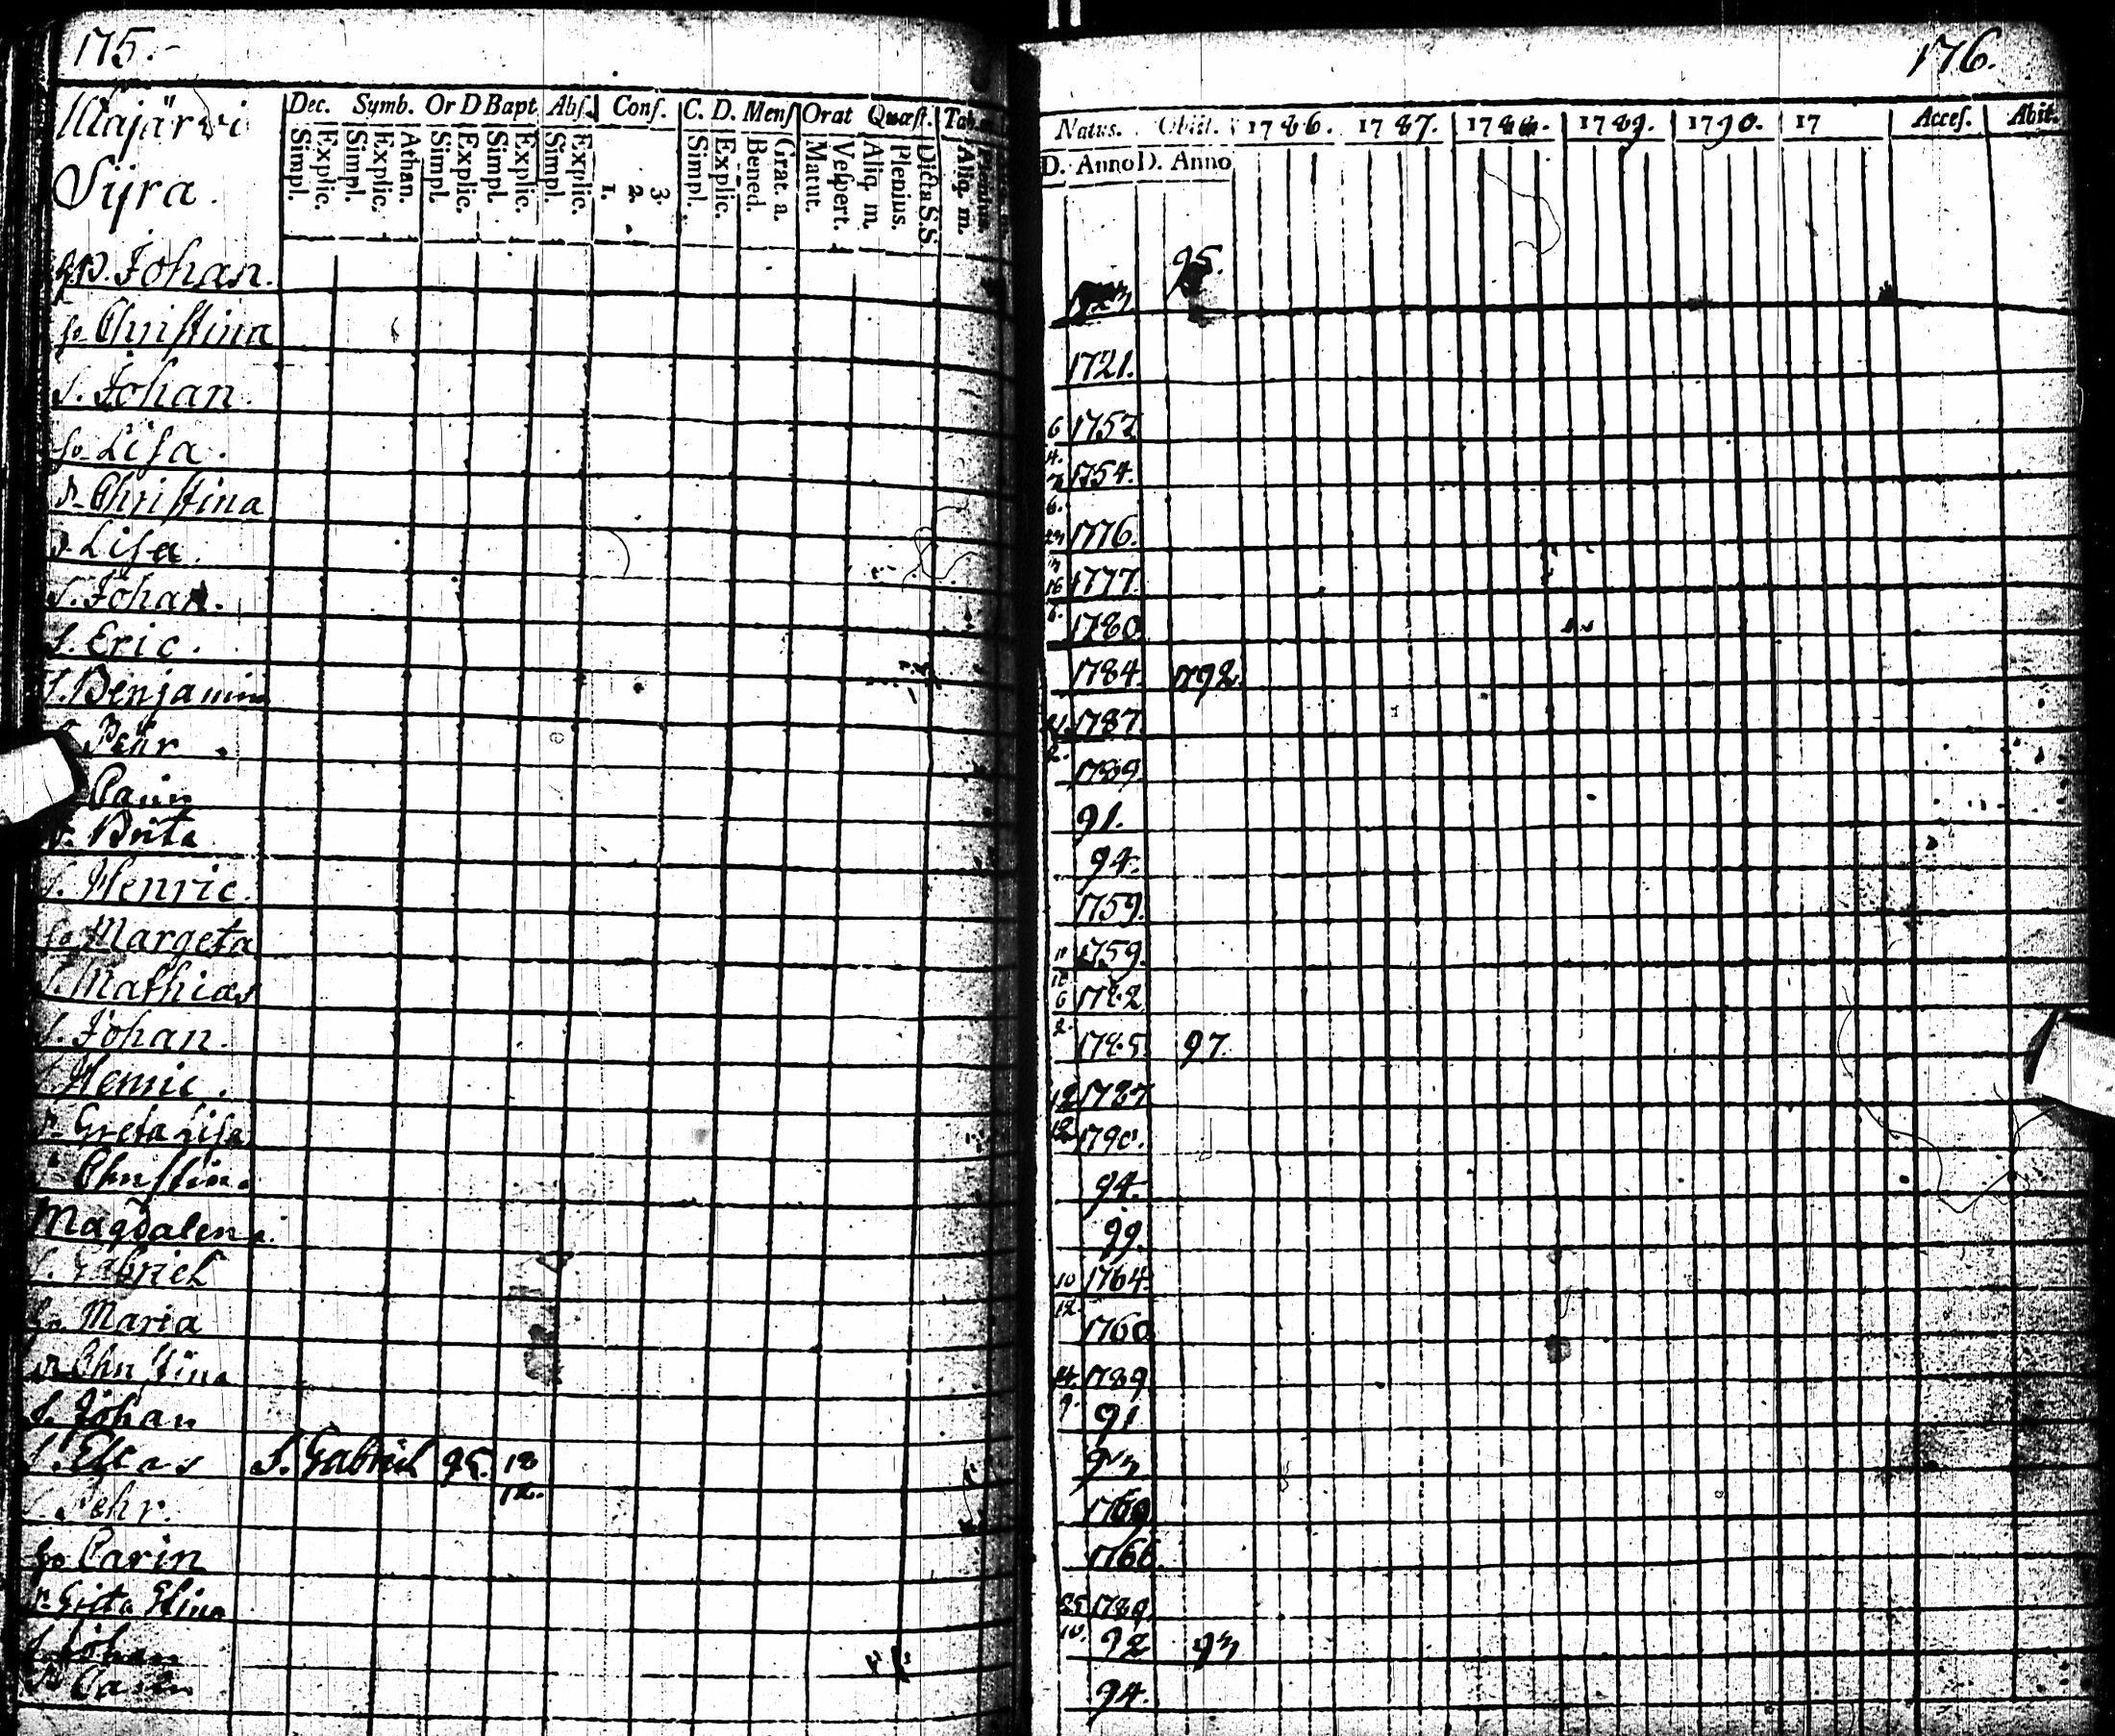 175.
Ulajärvi
Sijra.
Dec. Symb. Or D Bapt Abs. Conf. C. D. Mens Orat Quæst. Tab.
Simpl. Explic. Simpl. Explic. Athan. Simpl. Explic. Simpl. Explic. Simpl. Explic. 1. 2. 3. Simpl. Explic. Bened. Grat. a. Matut. Vespert. Aliq. m. Plenius. Dicta S.S Aliq. m. Plenius
Johan.
h. Christina
S. Johan.
h. Lisa.
d. Christina
d. Lisa.
S. Johan.
S. Eric.
S. Benjamin
Pehr
Carin
Brita
S. Henric.
h. Margeta
S. Mathias
S. Johan.
Henric.
d. Greta Lisa
Christina
Magdalena.
S. Gabriel
h. Maria
d. Christina
S. Johan
S. Elias S. Gabriel 95. 18 12.
Pehr.
h. Carin
d. Greta Stina
S. Johan
d. Carin
176.
Natus. Obiit. 1786. 1787. 1788. 1789. 1790. 17 Acces. Abit.
D. Anno D. Anno
95.
1721.
6 1757
4.
1754.
6.
1776.
1777.
16
1780
1784. 1792.
1787.
2.
1789
91.
94.
1759.
11 1759.
10
6 1782
2.
1785 97.
12 1787
12 1790.
94.
99.
10 1764.
12.
1760
24 1789
9. 91
93
1769
1766.
25 1789.
10. 92 93
94.